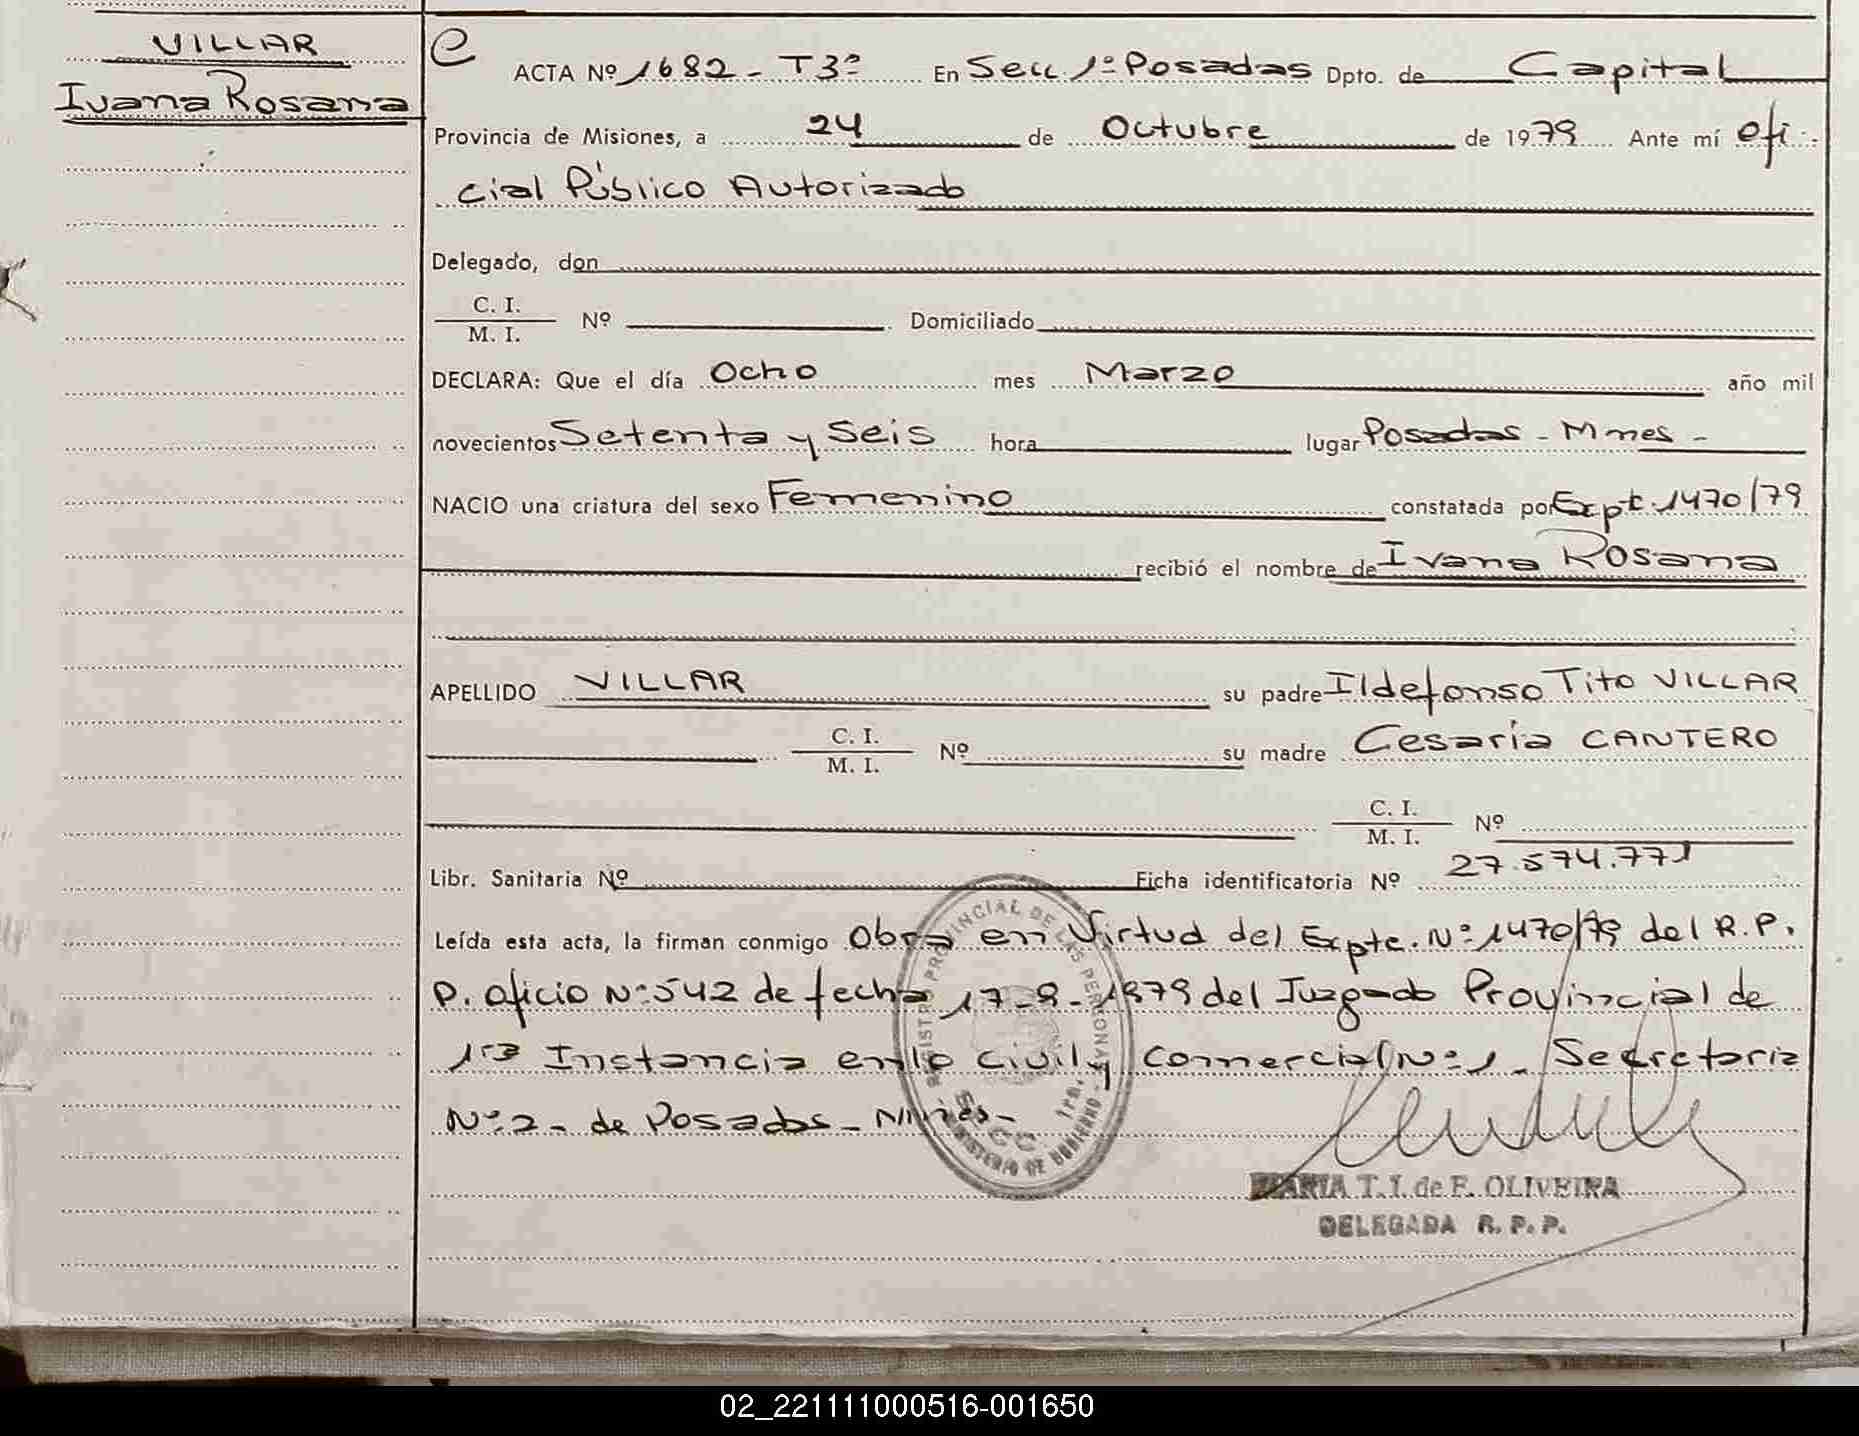 VILLAR
Ivana Rosana
ACTA Nº 1682 - T3º En Secc 1º Posadas Dpto. de Capital
Provincia de Misiones, a 24 de Octubre de 1979 Ante mí Ofi
cial Público Autorizado
Delegado, don
C. I.
M. I. Nº Domiciliado
DECLARA: Que el día Ocho mes Marzo año mil
novecientos Setenta y Seis hora lugar Posadas - Mnes -
NACIO una criatura del sexo Femenino constatada por Expt. 1470/79
recibió el nombre de Ivana Rosana
APELLIDO VILLAR su padre Ildefonso Tito VILLAR
C. I.
M. I. Nº su madre Cesaria CANTERO
C. I.
M. I. Nº
Libr. Sanitaria Nº Ficha identificatoria Nº 27.574.771
Leída esta acta, la firman conmigo Obra en Virtud del Expte. Nº 1470/79 del R.P.
P. oficio Nº 542 de fecha 17-9-1979 del Juzgado Provincial de
1ra Instancia en lo Civil y Comercial Nº 1 - Secretaria
Nº 2 - de Posadas - Mnes -
REGISTRO PROVINCIAL DE LAS PERSONAS
SECC. 1ra.
MINISTERIO DE GOBIERNO
MARIA T. I. de F. OLIVEIRA
DELEGADA R. P. P.
02_221111000516-001650